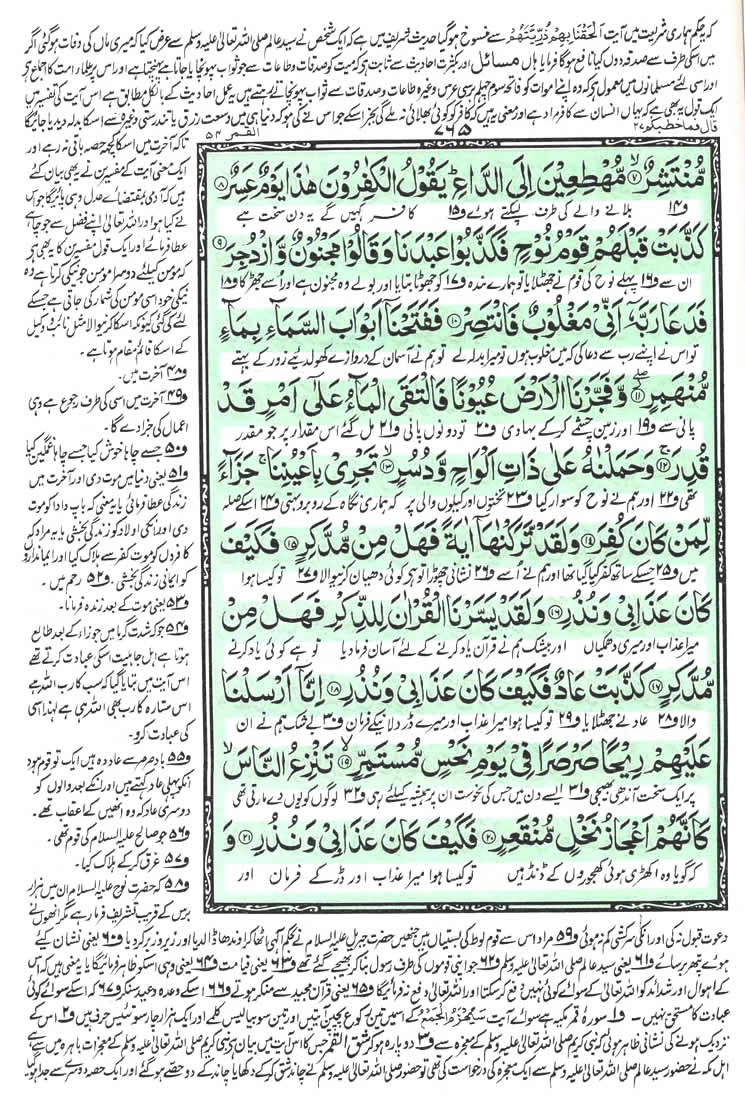 کہ یہ حکم ہماری شریعت میں آیت اَلْحَقْنَا بِهِمْ ذُرِّیَّتَهُمْ سے منسوخ ہو گیا حدیث شریف میں ہے کہ ایک شخص نے سید عالم صلی اللہ تعالیٰ علیہ وسلم سے عرض کیا کہ میری ماں کی وفات ہو گئی اگر
میں اسکی طرف سے صدقہ دوں کیا نافع ہوگا فرمایا ہاں مسائل اور بکثرت احادیث سے ثابت ہے کہ میت کو صدقات و طاعات سے جو ثواب پہونچایا جاتا ہے پہنچتا ہے اور اس پر علماء امت کا اجماع ہے
اور اسی لئے مسلمانوں میں معمول ہے کہ وہ اپنے اموات کو فاتحہ سوم چہلم برسی عرس وغیرہ طاعات و صدقات سے ثواب پہونچاتے رہتے ہیں یہ عمل احادیث کے بالکل مطابق ہے اس آیت کی تفسیر میں
ایک قول یہ بھی ہے کہ یہاں انسان سے کافر مراد ہے اور معنی یہ ہیں کہ کافر کو کوئی بھلائی نہ ملے گی بجز اسکے جو اس نے کی ہو کہ دنیا ہی میں وسعت رزق یا تندرستی وغیرہ سے اسکا بدلہ دیدیا جائیگا
قال فما خطبکم ۲۷
۷۶۵
القمر ۵۴
مُّنْتَشِرٌ ۷ مُّهْطِعِیْنَ اِلَى الدَّاعِ ؕ یَقُوْلُ الْكٰفِرُوْنَ هٰذَا یَوْمٌ عَسِرٌ ۸
ف۱۴ بلانے والے کی طرف لپکتے ہوئے ف۱۵ کافر کہیں گے یہ دن سخت ہے
كَذَّبَتْ قَبْلَهُمْ قَوْمُ نُوْحٍ فَكَذَّبُوْا عَبْدَنَا وَ قَالُوْا مَجْنُوْنٌ وَّ ازْدُجِرَ ۹
ان سے ف۱۶ پہلے نوح کی قوم نے جھٹلایا تو ہمارے بندہ ف۱۷ کو جھوٹا بتایا اور بولے وہ مجنون ہے اور اُسے جھڑکا ف۱۸
فَدَعَا رَبَّهٗۤ اَنِّیْ مَغْلُوْبٌ فَانْتَصِرْ ۱۰ فَفَتَحْنَاۤ اَبْوَابَ السَّمَآءِ بِمَآءٍ
تو اس نے اپنے رب سے دعا کی کہ میں مغلوب ہوں تو میرا بدلہ لے تو ہم نے آسمان کے دروازے کھول دئیے زور کے بہتے
مُّنْهَمِرٍ ۱۱ وَّ فَجَّرْنَا الْاَرْضَ عُیُوْنًا فَالْتَقَى الْمَآءُ عَلٰۤى اَمْرٍ قَدْ
پانی سے ف۱۹ اور زمین چشمے کر کے بہا دی ف۲۰ تو دونوں پانی ف۲۱ مل گئے اس مقدار پر جو مقدر
قُدِرَ ۱۲ وَ حَمَلْنٰهُ عَلٰى ذَاتِ اَلْوَاحٍ وَّ دُسُرٍ ۱۳ تَجْرِیْ بِاَعْیُنِنَا ۚ جَزَآءً
تھی ف۲۲ اور ہم نے نوح کو سوار کیا ف۲۳ تختوں اور کیلوں والی پر کہ ہماری نگاہ کے روبرو بہتی ف۲۴ اسکے صلہ
لِّمَنْ كَانَ كُفِرَ ۱۴ وَ لَقَدْ تَّرَكْنٰهَاۤ اٰیَةً فَهَلْ مِنْ مُّدَّكِرٍ ۱۵ فَكَیْفَ
میں ف۲۵ جسکے ساتھ کفر کیا گیا تھا اور ہم نے اُسے ف۲۶ نشانی چھوڑا تو ہے کوئی دھیان کرنیوالا ف۲۷ تو کیسا ہوا
كَانَ عَذَابِیْ وَ نُذُرِ ۱۶ وَ لَقَدْ یَسَّرْنَا الْقُرْاٰنَ لِلذِّكْرِ فَهَلْ مِنْ
میرا عذاب اور میری دھمکیاں اور بیشک ہم نے قرآن یاد کرنے کے لئے آسان فرمادیا تو ہے کوئی یاد کرنے
مُّدَّكِرٍ ۱۷ كَذَّبَتْ عَادٌ فَكَیْفَ كَانَ عَذَابِیْ وَ نُذُرِ ۱۸ اِنَّاۤ اَرْسَلْنَا
والا ف۲۸ عاد نے جھٹلایا ف۲۹ تو کیسا ہوا میرا عذاب اور میرے ڈر دلانیکے فرمان ف۳۰ بے شک ہم نے ان
عَلَیْهِمْ رِیْحًا صَرْصَرًا فِیْ یَوْمِ نَحْسٍ مُّسْتَمِرٍّ ۱۹ تَنْزِعُ النَّاسَ
پر ایک سخت آندھی بھیجی ف۳۱ ایسے دن میں جس کی نحوست ان پر ہمیشہ کیلئے رہی ف۳۲ لوگوں کو یوں دے مارتی تھی
كَاَنَّهُمْ اَعْجَازُ نَخْلٍ مُّنْقَعِرٍ ۲۰ فَكَیْفَ كَانَ عَذَابِیْ وَ نُذُرِ ۲۱ وَ
کہ گویا وہ اکھڑی ہوئی کھجوروں کے ڈنڈ ہیں تو کیسا ہوا میرا عذاب اور ڈر کے فرمان اور
تاکہ آخرت میں اسکا کچھ حصہ باقی نہ رہے اور
ایک معنی آیت کے مفسرین نے یہ بھی بیان کئے
ہیں کہ آدمی بمقتضائے عدل وہی پائیگا جو اس
نے کیا ہو اور اللہ تعالیٰ اپنے فضل سے جو چاہے
عطا فرمائے اور ایک قول مفسرین کا یہ بھی ہے
کہ مومن کیلئے دوسرا مومن جو نیکی کرتا ہے وہ
نیکی خود اسی مومن کی شمار کی جاتی ہے جسکے
لئے کی گئی کیونکہ اسکا کرنیوالا مثل نائب و وکیل
کے اسکا قائم مقام ہوتا ہے۔
ف۴۸ آخرت میں۔
ف۴۹ آخرت میں اسی کی طرف رجوع ہے وہی
اعمال کی جزا دے گا۔
ف۵۰ جسے چاہا خوش کیا جسے چاہا غمگین کیا
ف۵۱ یعنی دنیا میں موت دی اور آخرت میں
زندگی عطا فرمائی یا یہ معنی کہ باپ دادا کو موت
دی اور انکی اولاد کو زندگی بخشی یا یہ مراد کہ
کافروں کو موت کفر سے ہلاک کیا اور ایمانداروں
کو ایمانی زندگی بخشی۔ ف۵۲ رحم میں۔
ف۵۳ یعنی موت کے بعد زندہ فرمانا۔
ف۵۴ جو کہ شدت گرما میں جوزاء کے بعد طالع
ہوتا ہے اہل جاہلیت اسکی عبادت کرتے تھے
اس آیت میں بتایا گیا کہ سب کا رب اللہ ہے
اس ستارہ کا رب بھی اللہ ہی ہے لہٰذا اسی
کی عبادت کرو۔
ف۵۵ باد صرصر سے عاد دو ہیں ایک تو قوم ہود
انکو پہلی عاد کہتے ہیں اور انکے بعد والوں کو
دوسری عاد کہ وہ انھیں کے اعقاب تھے۔
ف۵۶ جو صالح علیہ السلام کی قوم تھی۔
ف۵۷ غرق کر کے ہلاک کیا۔
ف۵۸ کہ حضرت نوح علیہ السلام ان میں ہزار
برس کے قریب تشریف فرما رہے مگر انھوں نے
دعوت قبول نہ کی اور انکی سرکشی کم نہ ہوئی ف۵۹ مراد اس سے قوم لوط کی بستیاں ہیں جنھیں حضرت جبریل علیہ السلام نے بحکم الٰہی اٹھا کر اوندھا ڈالدیا اور زیر و زبر کر دیا ف۶۰ یعنی نشان کئے
ہوئے پتھر برسائے ف۶۱ یعنی سید عالم صلی اللہ تعالیٰ علیہ وسلم ف۶۲ جو اپنی قوموں کی طرف رسول بنا کر بھیجے گئے تھے ف۶۳ یعنی قیامت ف۶۴ یعنی وہی اسکو ظاہر فرمائیگا یا یہ معنی ہیں کہ اس
کے اہوال اور شدائد کو اللہ تعالیٰ کے سوا کوئی نہیں دفع کر سکتا اور اللہ تعالیٰ دفع نہ فرمائیگا ف۶۵ یعنی قرآن مجید سے منکر ہوتے ف۶۶ اسکے وعدہ وعید سنکر ف۶۷ کہ اسکے سوائے کوئی
عبادت کا مستحق نہیں۔ ف۱ سورۂ قمر مکیہ ہے سوائے آیت سَیُهْزَمُ الْجَمْعُ کے اسمیں تین رکوع پچپن آیتیں اور تین سو بیالیس کلمے اور ایک ہزار چار سو تئیس حرف ہیں ف۲ اس کے
نزدیک ہونے کی نشانی ظاہر ہوئی کہ نبی کریم صلی اللہ تعالیٰ علیہ وسلم کے معجزہ سے ف۳ دو پارہ ہو کر شق القمر جس کا اس آیت میں بیان ہے نبی کریم صلی اللہ تعالیٰ علیہ وسلم کے معجزات باہرہ میں سے ہے
اہل مکہ نے حضور سید عالم صلی اللہ تعالیٰ علیہ وسلم سے ایک معجزہ کی درخواست کی تھی تو حضور صلی اللہ تعالیٰ علیہ وسلم نے چاند شق کر کے دکھایا چاند کے دو حصے ہو گئے اور ایک حصہ دوسرے سے جدا ہو گیا